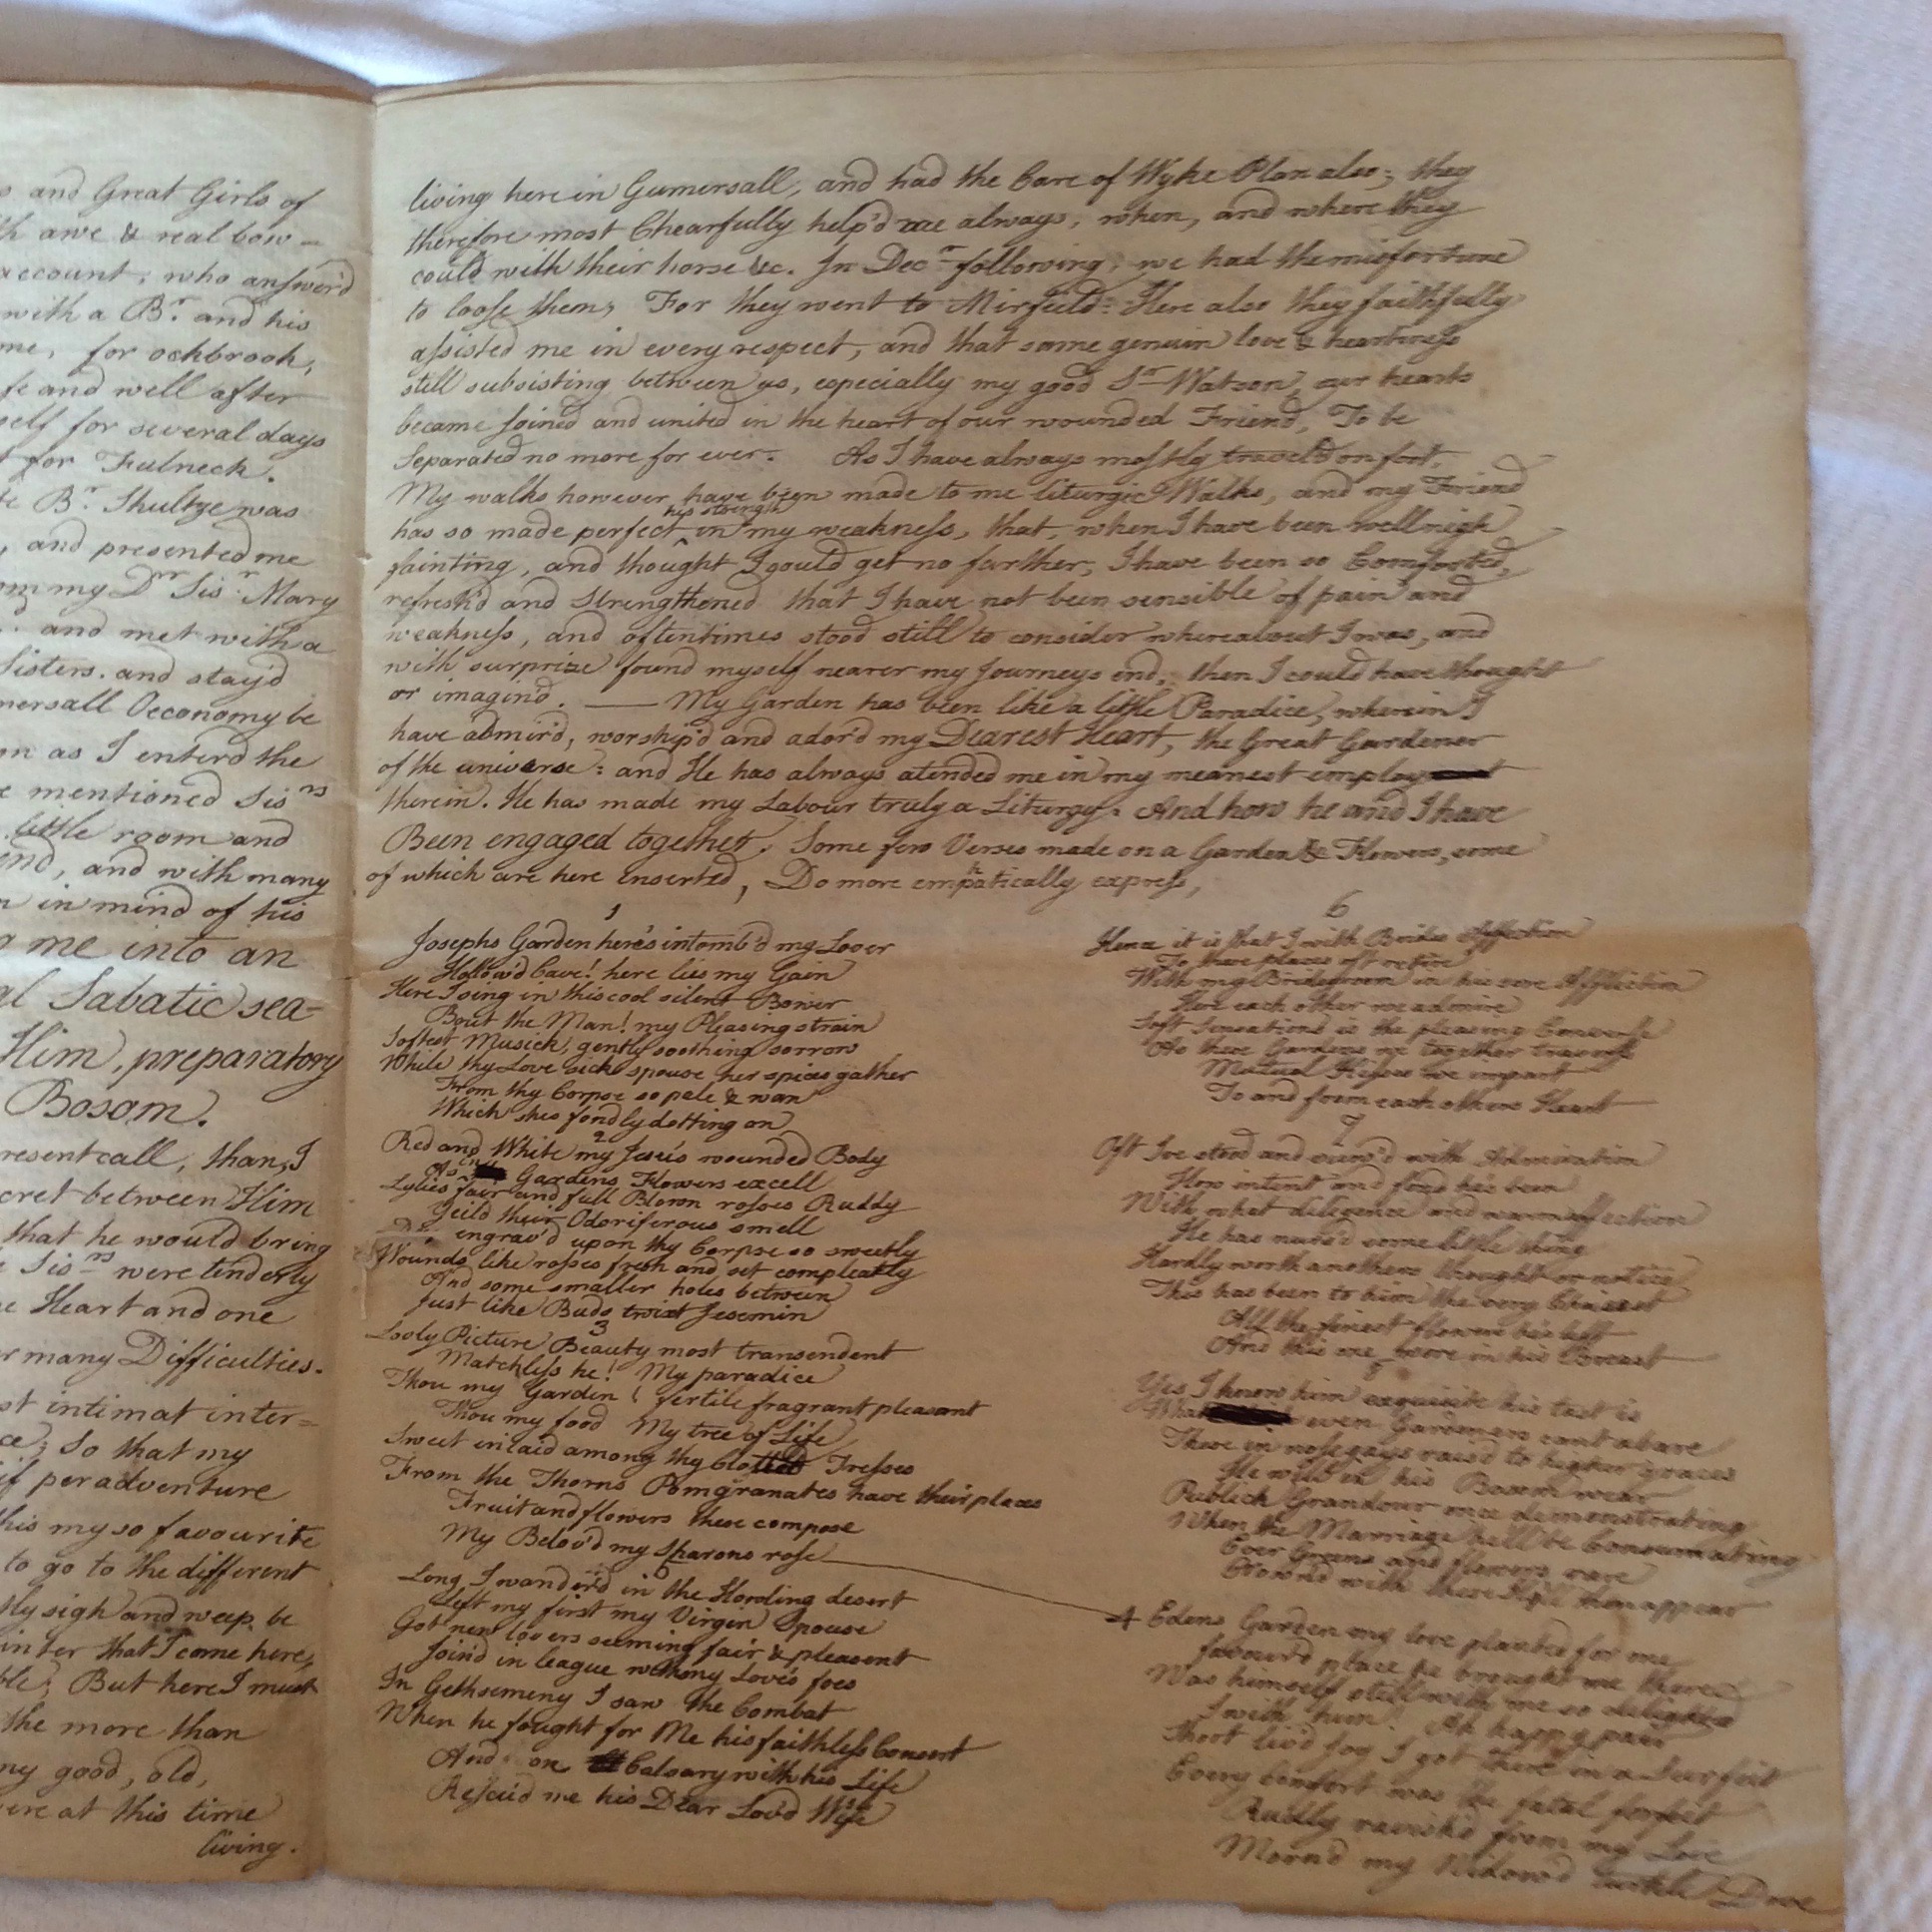 s and Great Girls of
th awe & real bow=
account; who answer'd
with a Br. and his
me, for ockbrook,
fe and well after
self for several days
for Fulneck.
Br. Shultze was
, and presented me
om my Dr Sisr. Mary
and met with a
Sisters. and stay'd
mersall Oeconomy be
on as I enter'd the
e mentioned Sisrs
little room and
end, and with many
n in mind of his
me into an
al Sabatic sea=
Him, preparatory
Bosom.
resent call, than, I
cret between Him
that he would bring
Sisrs were tenderly
e Heart and one
r many Difficulties.
st intimat inter=
ce; So that my
if peradventure
his my so favourite
to go to the different
tly sigh and weep be
inter that I come here,
ble; But here I must
the more than
my good, old,
were at this time
living.
living here in Gumersall, and had the Care of Wyke Plan also; they
therefore most Chearfully help'd me always, when, and where they
could with their horse &c. In Decr following, we had the misfortune
to loose them, For they went to Mirfield: Here also they faithfully
assisted me in every respect, and that same genuin love & heartiness
still subsisting between us, especially my good Sr Watson, our hearts
became joined and united in the heart of our wounded Friend, To be
Separated no more for ever. As I have always mostly travel'd on foot,
My walks however have been made to me liturgic Walks, and my Friend
his strength
has so made perfect ^ in my weakness, that, when I have been well nigh
fainting, and thought I could get no farther, I have been so Comforted,
refresh'd and Strengthened that I have not been sensible of pain and
weakness, and oftentimes stood still to consider whereabout I was, and
with surprize found myself nearer my Journeys end, then I could have thought
or imagin'd. — My Garden has been like a little Paradice, wherein I
have admir'd, worship'd and ador'd my Dearest Heart, the Great Gardener
of the universe: and He has always atended me in my meanest employ
therein. He has made my Labour truly a Liturgy. And how he and I have
Been engaged together. Some few Verses made on a Garden & Flowers, some
of which are here inserted, Do more emphatically express,
1
Josephs Garden here's intomb'd my Lover
Hollow'd Cave! here lies my Gain
Here I sing in this cool silent Bower
Bout the Man! my Pleasing strain
Softest Musick, gently soothing sorrow
While thy Love sick spouse her spices gather
From thy Corpse so pale & wan
Which shes fondly dotting on
2
Red and White my Jesu's wounded Body
As Gardens Flowers excell
Lylies fair and full Blown roses Ruddy
Yeild their Odoriferous smell
engrav'd upon thy Corpse so sweetly
Wounds like roses fresh and set compleatly
And some smaller holes between
Just like Buds twixt Jesemin
3
Looly Picture Beauty most transendent
Matchless he! My paradice
Thou my Garden! fertile fragrant pleasant
Thou my food My tree of Life
Sweet inlaid among thy Tresses
From the Thorns Pomgranates have their places
Fruit and flowers these compose
My Belov'd my Sharons rose
5
Long I wander'd in the Howling desert
Left my first my Virgin Spouse
Got new lovers seeming fair & pleasent
Join'd in league with my Love's foes
In Gethsemeny I saw the Combat
When he fought for Me his faithless Consort
And on Calvary with his Life
Rescu'd me his Dear Lov'd Wife
6
Hence it is that I with Brides Affection
To these places oft retire
With my Bridegroom in his sore Affliction
Here each other we admire
Soft Sensations is the pleasing Converse
As these Gardens we together traverse
Mutual we impart
To and from each others Heart
7
Oft I've stood and view'd with Admiration
How intent and fond he's been
With what diligence and warm affection
He has nurs'd some little thing
Hardly worth anothers thought or notice
This has been to him the very Choicest
All the finest flowers he's left
And this one wore in his Breast
8
Yes I know him exquisite his tast is
What even Gardeners cant abare
These in nosegays rais'd to higher graces
He will in his Bosom wear
Publick Grandour once demonstrating
When the Marriage he'll be Consummating
Ever Greens and flowers rare
Crown'd with these He'll then appear
4 Edens Garden my love planted for me
favour'd place he brought me there
Was himself still with me so delighted
I with him! Ah happy pair
Short liv'd Joy I got there in a Surfeit
Every comfort was the fatal forfeit
Rudely ravish'd from my Love
Mourn'd my Widow'd turtle Dove